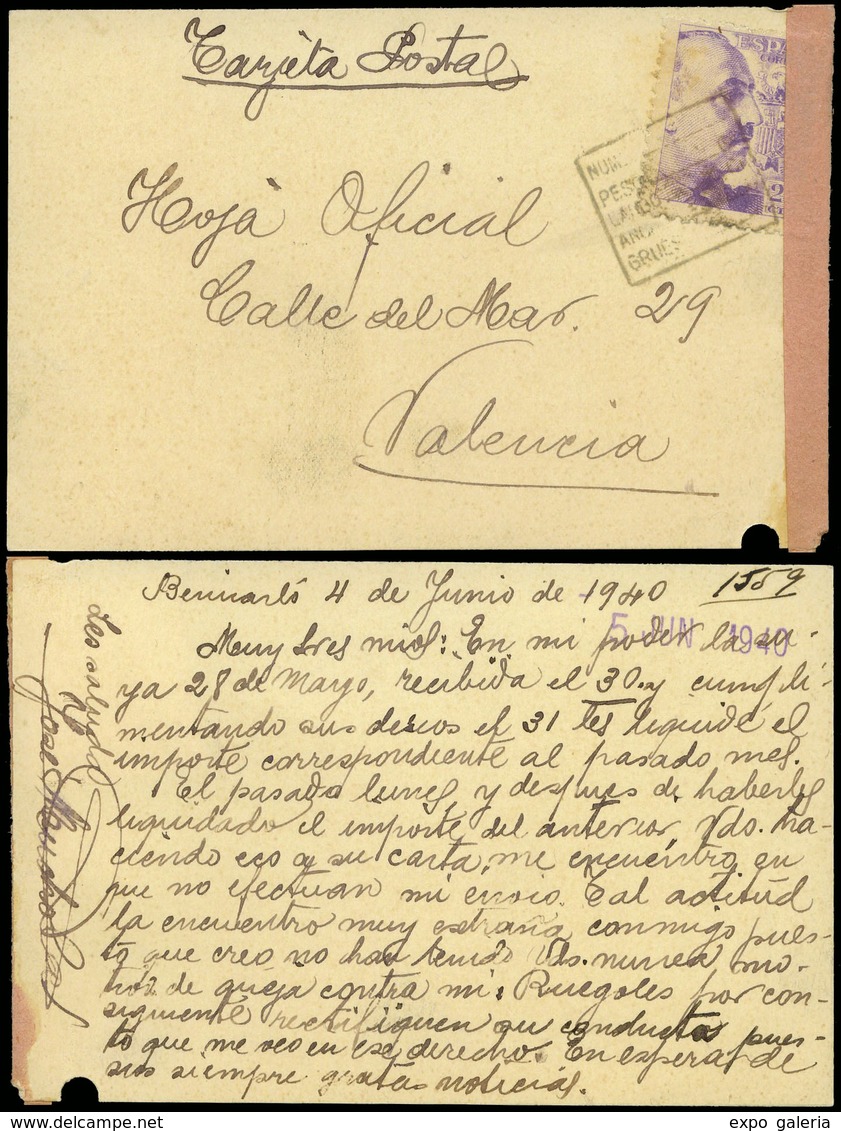 Tarjeta Postal
ESPA
COR
2
NUM
PES
AN
GRUES
Hoja Oficial
Calle del Mar. 29
Valencia
Benicarló 4 de Junio de 1940 1559
5 JUN 1940
Muy Sres mios: En mi poder la su-
ya 28 de Mayo, recibida el 30. y cumpli-
mentando sus deseos el 31 les liquidé el
importe correspondiente al pasado mes.
El pasado lunes, y despues de haberles
liquidado el importe del anterior, Vds. ha-
ciendo eco a su carta, me encuentro en
que no efectuan mi envio. Tal actitud
la encuentro muy extraña conmigo pues-
to que creo no han tenido Vds. nunca mo-
tivo de queja contra mi. Ruegoles por con-
siguiente rectifiquen su conducta pues-
to que me veo en ese derecho. En espera de
sus siempre gratas noticias.
Les saluda
José
expo galeria